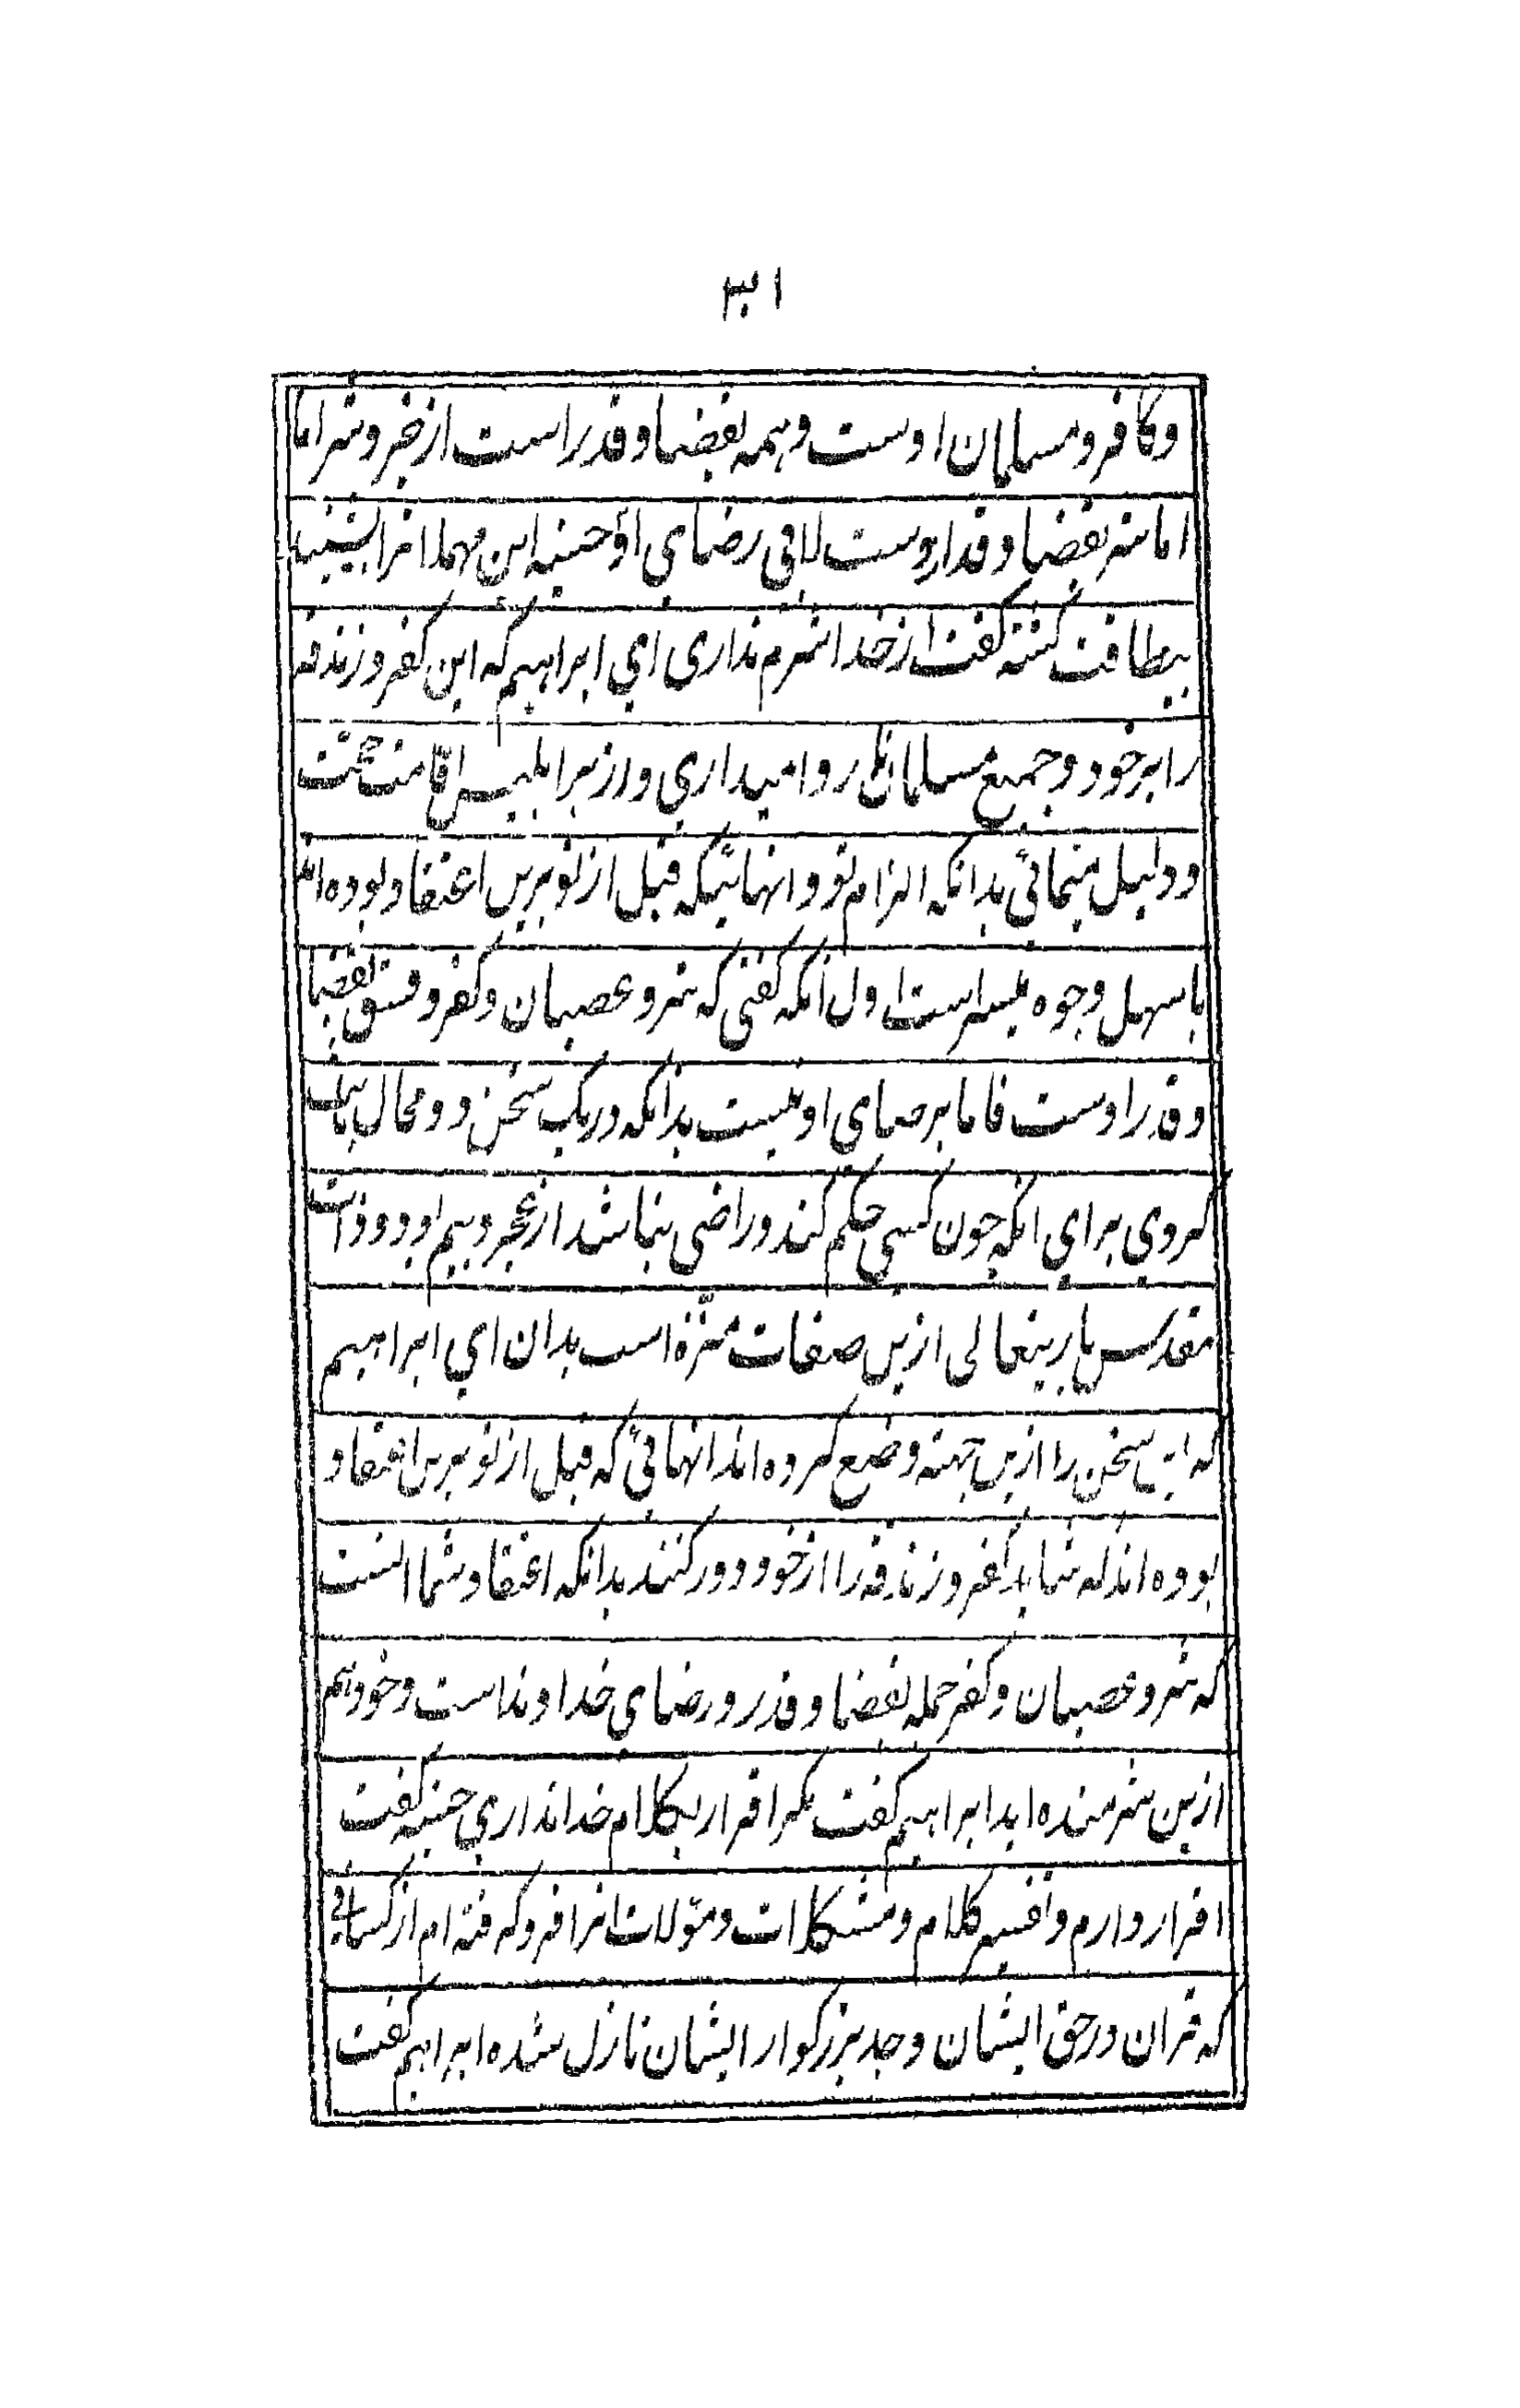 ۳۱
و کافر و مسلمان اوست و همه بقضا و قدر است از خیر و شر اما
اما شر بقضا و قدر اوست لا فی رضای او حسنیه این مهملا انرا بشنید
بیطاقت کشته کفت از خدا شرم نداری ای ابراهیم که این کفر و زندقه
را بر خود و جمیع مسلمانان روا میداری و از بهر ابلیس اقامت حجت
و دلیل مینمائی بدانکه الزام تو و انهائیکه قبل از تو برین اعتقاد بوده اند
باسهل وجوه میسر است اول انکه کفتی که شر و عصیان و کفر و فسق بقضا
و قدر اوست فاما برضای او نیست بدانکه در یک سخن دو محال اثبات
کردی برای انکه چون کسی حکم کند و راضی نباشد از عجز و بیم او بود و ذات
مقدس باریتعالی ازین صفات منزه است بدان ای ابراهیم
که این سخن را ازین جهته وضع کرده اند انهائی که قبل از تو برین اعتقاد
بوده اند که شاید کفر و زندقه را از خود دور کنند بدانکه اعتقاد شما انست
که شر و عصیان و کفر جمله بقضا و قدر و رضای خداوند است و خود هم
ازین شرمنده اید ابراهیم کفت مکر اقرار بکلام خدا نداری حسنیه کفت
اقرار دارم و تفسیر کلام و مشکلات و مؤلات انرا فرو کرفته ام از کسانی
که قران در حق ایشان و جد بزرکوار ایشان نازل شده ابراهیم کفت